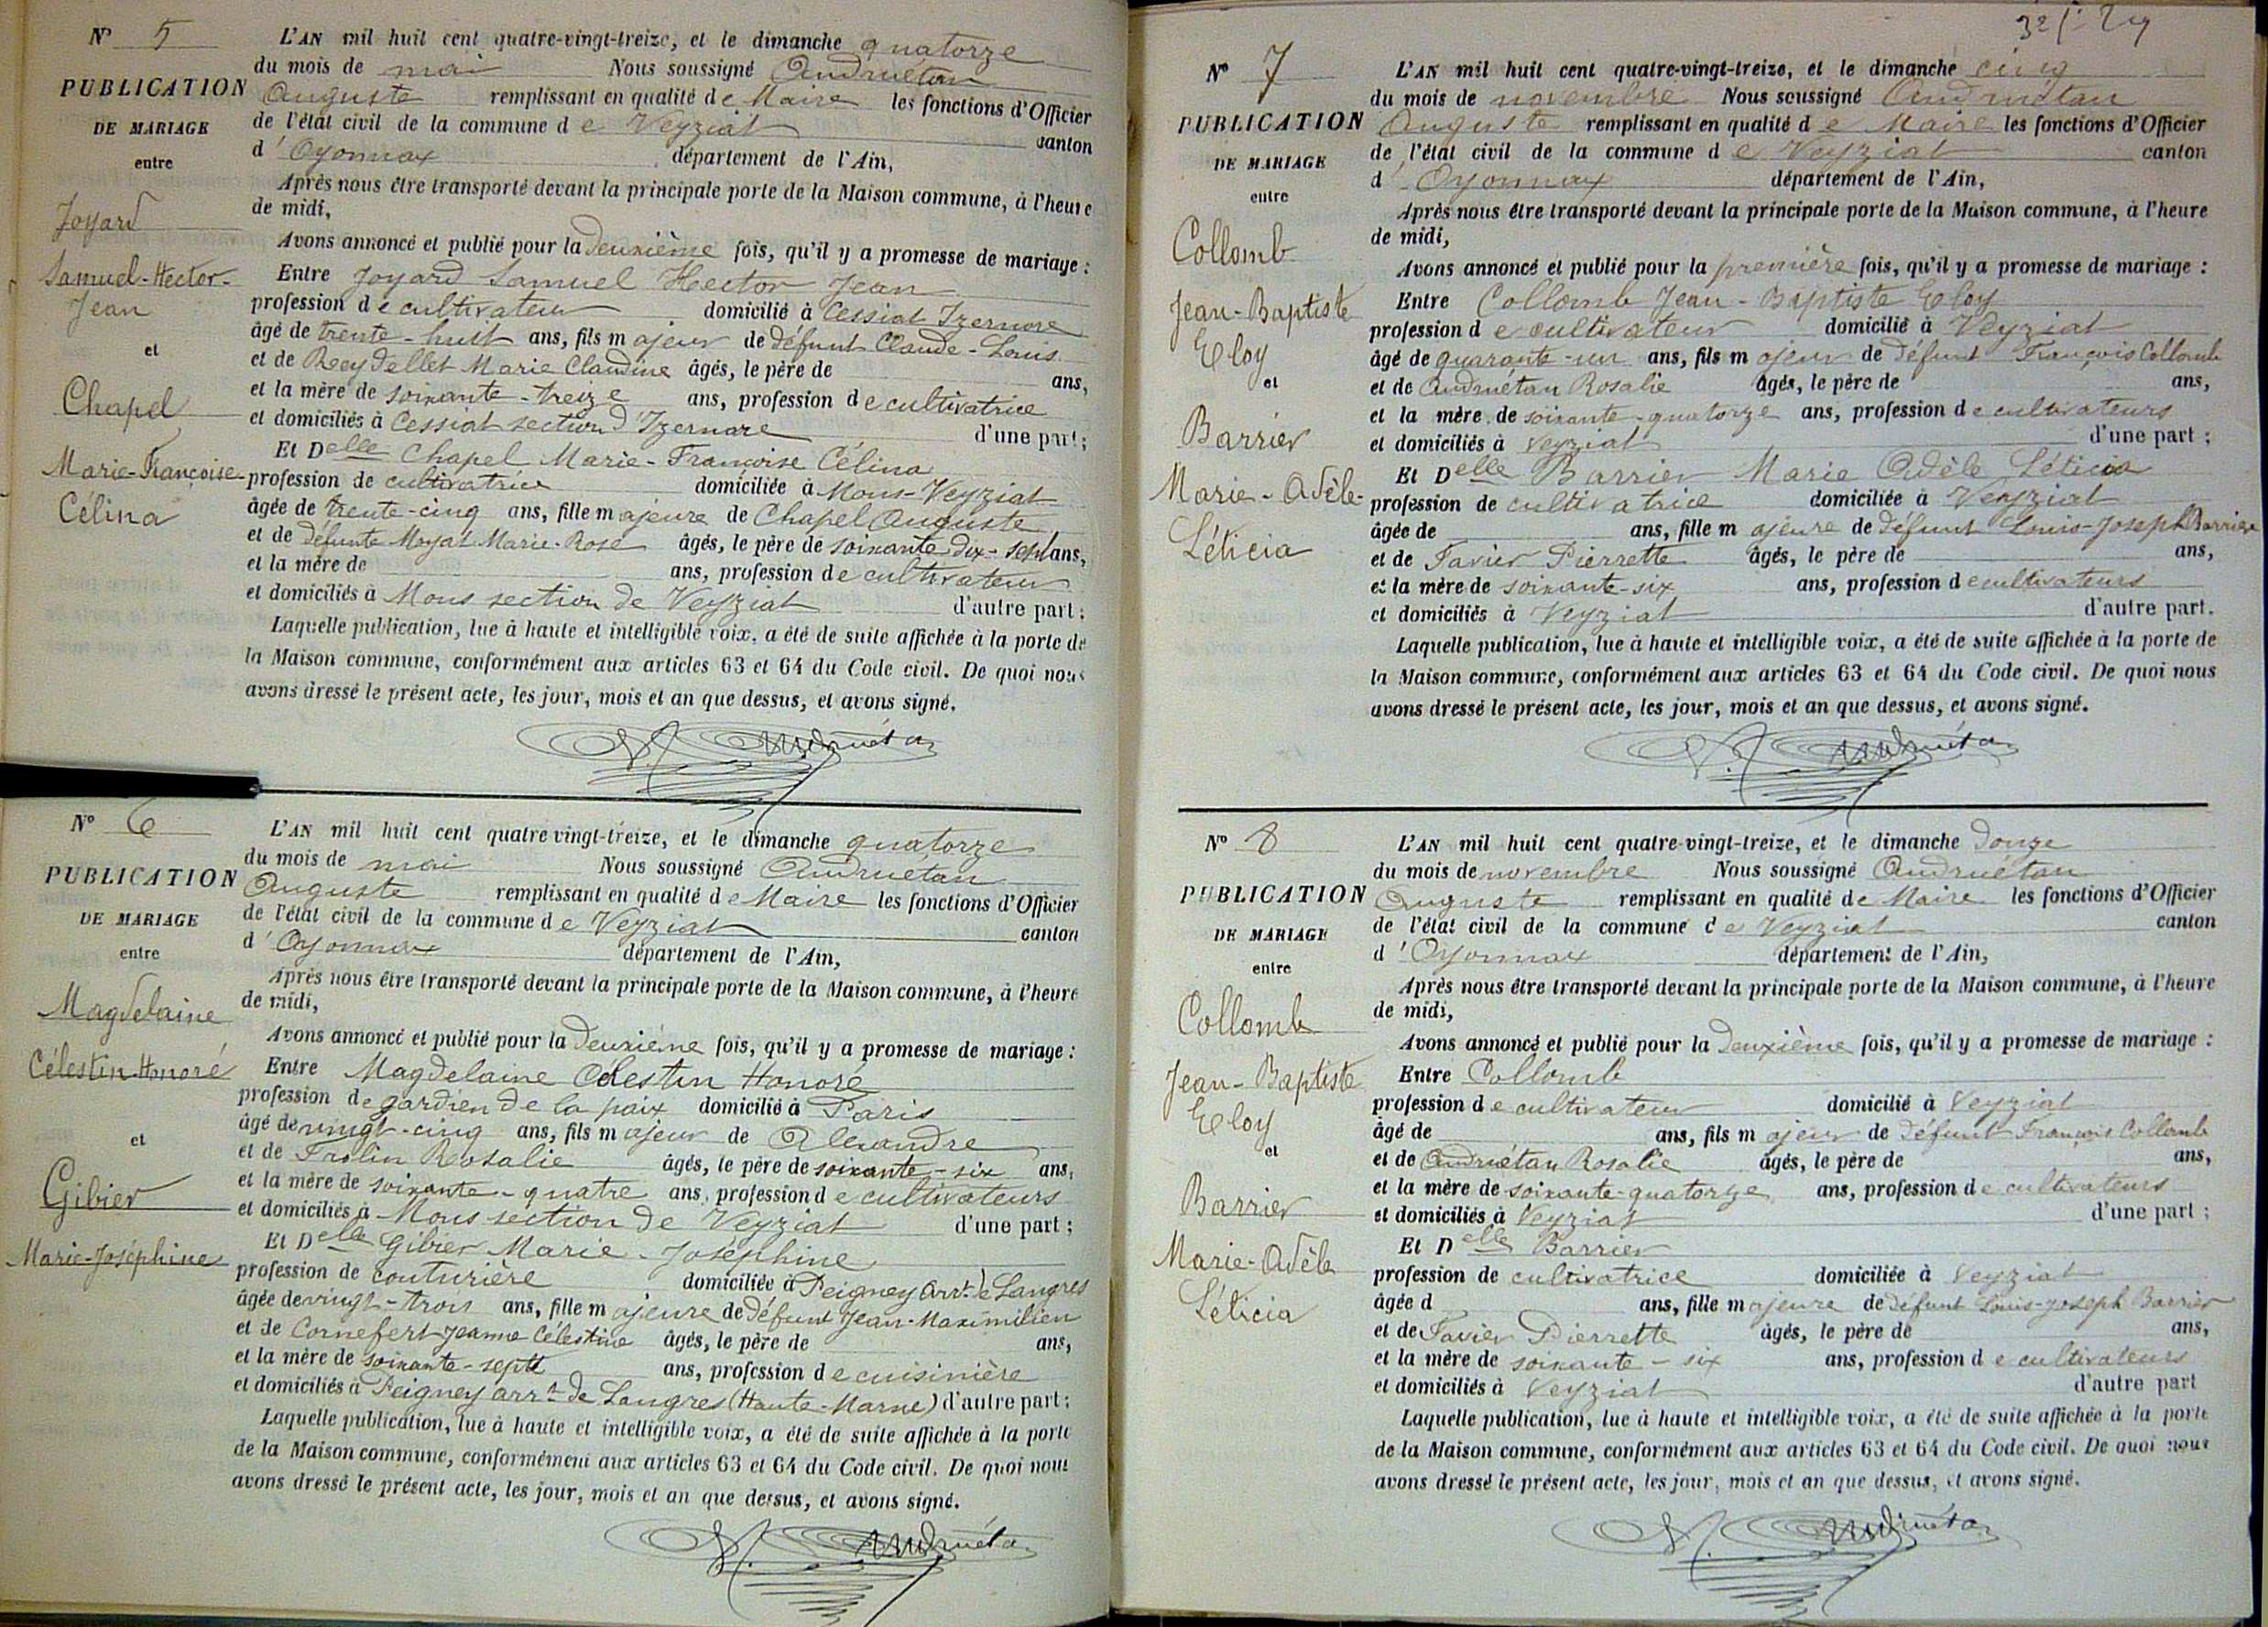 N° 5
PUBLICATION
DE MARIAGE
entre
Joyard
Samuel-Hector-
Jean
et
Chapel
Marie-Françoise
Célina
L'AN mil huit cent quatre-vingt-treize, et le dimanche quatorze
du mois de mai Nous soussigné Andruétan
Auguste remplissant en qualité de Maire les fonctions d'Officier
de l'état civil de la commune de Veyziat canton
d'Oyonnax département de l'Ain,
Après nous être transporté devant la principale porte de la Maison commune, à l'heure
de midi,
Avons annoncé et publié pour la deuxième fois, qu'il y a promesse de mariage :
Entre Joyard Samuel Hector Jean
profession de cultivateur domicilié à Cessiat Izernore
âgé de trente-huit ans, fils majeur de défunt Claude-Louis
et de Reydellet Marie Claudine âgés, le père de ans,
et la mère de soixante-treize ans, profession de cultivatrice
et domiciliés à Cessiat section d'Izernore d'une part ;
Et Delle Chapel Marie-Françoise Célina
profession de cultivatrice domiciliée à Mons-Veyziat
âgée de trente-cinq ans, fille majeure de Chapel Auguste
et de défunte Moyat Marie-Rose âgés, le père de soixante dix-sept ans,
et la mère de ans, profession de cultivateur
et domiciliés à Mons section de Veyziat d'autre part ;
Laquelle publication, lue à haute et intelligible voix, a été de suite affichée à la porte de
la Maison commune, conformément aux articles 63 et 64 du Code civil. De quoi nous
avons dressé le présent acte, les jour, mois et an que dessus, et avons signé.
A. Andruétan
N° 6
PUBLICATION
DE MARIAGE
entre
Magdelaine
Célestin-Honoré
et
Gibier
Marie-Joséphine
L'AN mil huit cent quatre vingt-treize, et le dimanche quatorze
du mois de mai Nous soussigné Andruétan
Auguste remplissant en qualité de Maire les fonctions d'Officier
de l'état civil de la commune de Veyziat canton
d'Oyonnax département de l'Ain,
Après nous être transporté devant la principale porte de la Maison commune, à l'heure
de midi,
Avons annoncé et publié pour la deuxième fois, qu'il y a promesse de mariage :
Entre Magdelaine Célestin Honoré
profession de gardien de la paix domicilié à Paris
âgé de vingt-cinq ans, fils majeur de Alexandre
et de Frolin Rosalie âgés, le père de soixante-six ans,
et la mère de soixante-quatre ans, profession de cultivateurs
et domiciliés à Mons section de Veyziat d'une part ;
Et Delle Gibier Marie-Joséphine
profession de couturière domiciliée à Peigney arrt de Langres
âgée de vingt-trois ans, fille majeure de défunt Jean-Maximilien
et de Cornefert Jeanne Célestine âgés, le père de ans,
et la mère de soixante-sept ans, profession de cuisinière
et domiciliés à Peigney arrt de Langres (Haute-Marne) d'autre part ;
Laquelle publication, lue à haute et intelligible voix, a été de suite affichée à la porte
de la Maison commune, conformément aux articles 63 et 64 du Code civil. De quoi nous
avons dressé le présent acte, les jour, mois et an que dessus, et avons signé.
A. Andruétan
N° 7
PUBLICATION
DE MARIAGE
entre
Collomb
Jean-Baptiste
Eloy
et
Barrier
Marie-Adèle-
Léticia
L'AN mil huit cent quatre-vingt-treize, et le dimanche cinq
du mois de novembre Nous soussigné Andruétan
Auguste remplissant en qualité de Maire les fonctions d'Officier
de l'état civil de la commune de Veyziat canton
d'Oyonnax département de l'Ain,
Après nous être transporté devant la principale porte de la Maison commune, à l'heure
de midi,
Avons annoncé et publié pour la première fois, qu'il y a promesse de mariage :
Entre Collomb Jean-Baptiste Eloy
profession de cultivateur domicilié à Veyziat
âgé de quarante-un ans, fils majeur de défunt François Collomb
et de Andruétan Rosalie âgés, le père de ans,
et la mère de soixante-quatorze ans, profession de cultivateurs
et domiciliés à Veyziat d'une part ;
Et Delle Barrier Marie Adèle Léticia
profession de cultivatrice domiciliée à Veyziat
âgée de ans, fille majeure de défunt Louis-Joseph Barrier
et de Favier Pierrette âgés, le père de ans,
et la mère de soixante-six ans, profession de cultivateurs
et domiciliés à Veyziat d'autre part.
Laquelle publication, lue à haute et intelligible voix, a été de suite affichée à la porte de
la Maison commune, conformément aux articles 63 et 64 du Code civil. De quoi nous
avons dressé le présent acte, les jour, mois et an que dessus, et avons signé.
A. Andruétan
N° 8
PUBLICATION
DE MARIAGE
entre
Collomb
Jean-Baptiste
Eloy
et
Barrier
Marie-Adèle
Léticia
L'AN mil huit cent quatre-vingt-treize, et le dimanche douze
du mois de novembre Nous soussigné Andruétan
Auguste remplissant en qualité de Maire les fonctions d'Officier
de l'état civil de la commune de Veyziat canton
d'Oyonnax département de l'Ain,
Après nous être transporté devant la principale porte de la Maison commune, à l'heure
de midi,
Avons annoncé et publié pour la deuxième fois, qu'il y a promesse de mariage :
Entre Collomb
profession de cultivateur domicilié à Veyziat
âgé de ans, fils majeur de défunt François Collomb
et de Andruétan Rosalie âgés, le père de ans,
et la mère de soixante-quatorze ans, profession de cultivateurs
et domiciliés à Veyziat d'une part ;
Et Delle Barrier
profession de cultivatrice domiciliée à Veyziat
âgée d ans, fille majeure de défunt Louis-Joseph Barrier
et de Favier Pierrette âgés, le père de ans,
et la mère de soixante-six ans, profession de cultivateurs
et domiciliés à Veyziat d'autre part
Laquelle publication, lue à haute et intelligible voix, a été de suite affichée à la porte
de la Maison commune, conformément aux articles 63 et 64 du Code civil. De quoi nous
avons dressé le présent acte, les jour, mois et an que dessus, et avons signé.
A. Andruétan